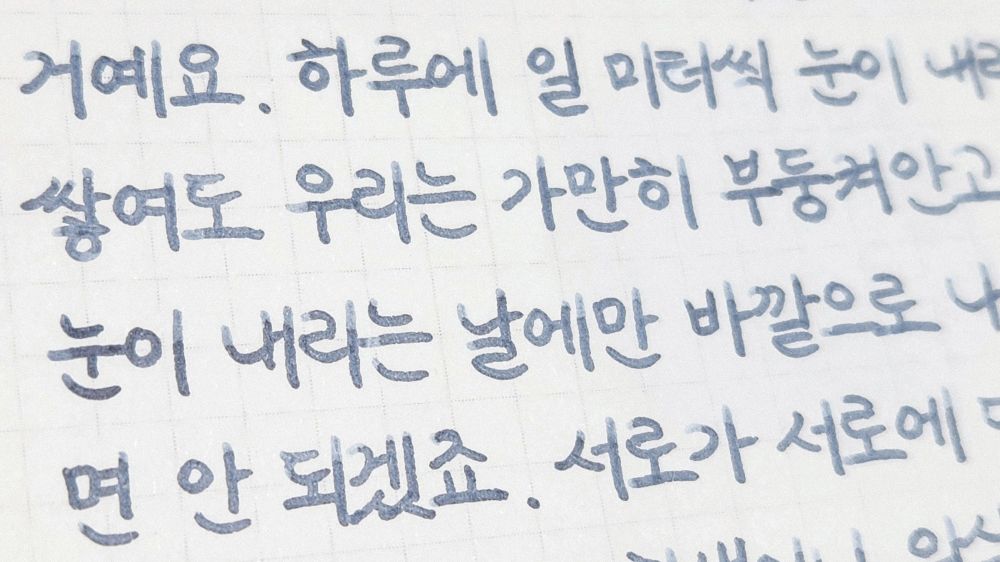 거예요. 하루에 일 미터씩 눈이 내리
쌓여도 우리는 가만히 부둥켜안고
눈이 내리는 날에만 바깥으로
면 안 되겠죠. 서로가 서로에